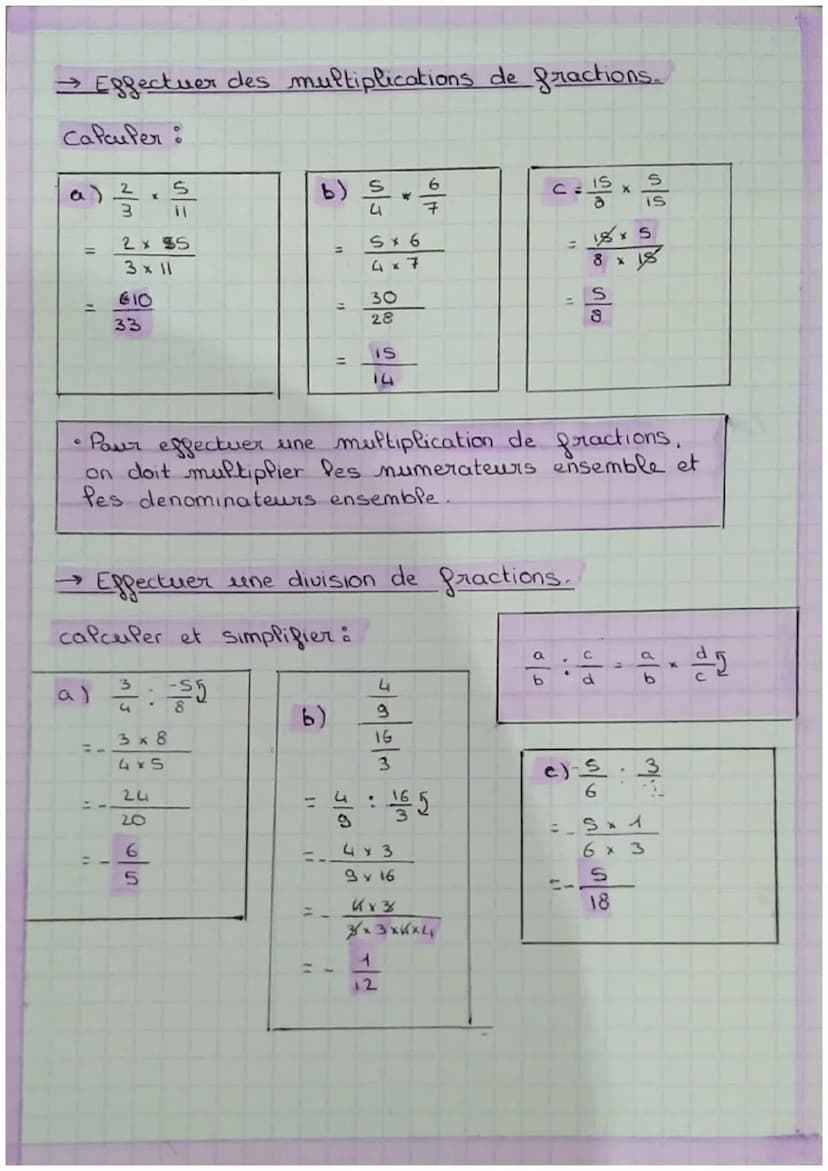 → Effectuer des multiplications de fractions.
Calculer :
a) 2/3 × 5/11
= 2 × 5 / 3 × 11
= 10/33
b) 5/4 × 6/7
= 5 × 6 / 4 × 7
= 30/28
= 15/14
C = 15/8 × 5/15
= 15 × 5 / 8 × 15
= 5/8
• Pour effectuer une multiplication de fractions,
on doit multiplier les numerateurs ensemble et
les denominateurs ensemble.
→ Effectuer une division de fractions.
calculer et simplifier :
a/b : c/d = a/b × d/c
a) 3/4 : -5/8
= - 3 × 8 / 4 × 5
= - 24/20
= - 6/5
b) 4/9 / 16/3
= 4/9 : 16/3
= - 4 × 3 / 9 × 16
= - 4 × 3 / 3 × 3 × 4 × 4
= - 1/12
c) -5/6 : 3
= - 5 × 1 / 6 × 3
= - 5/18